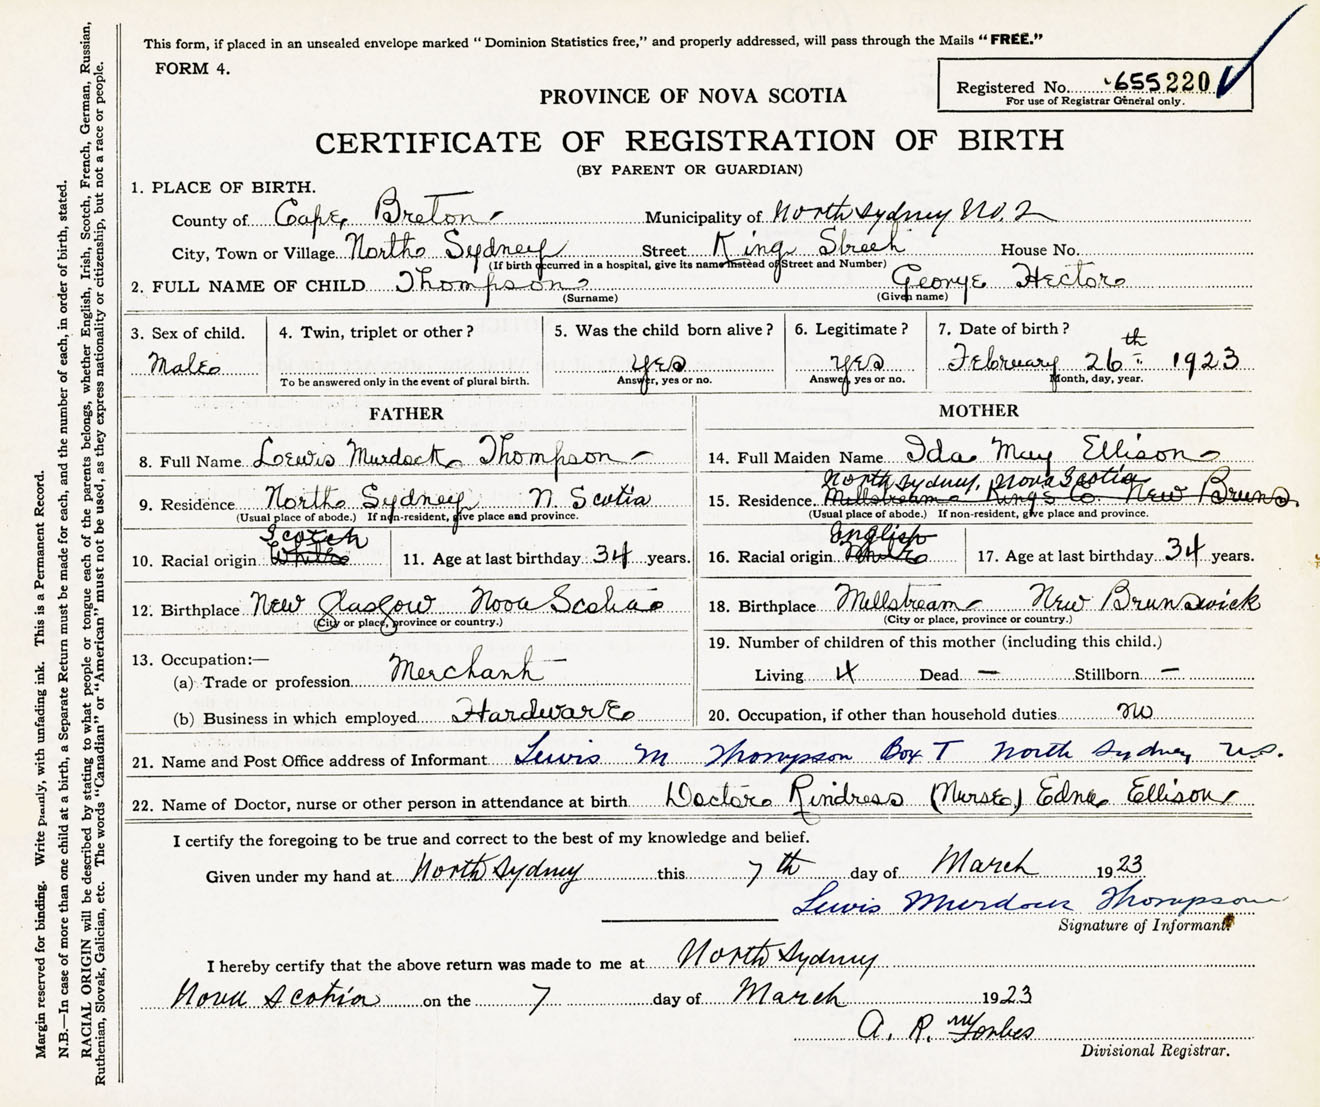 This form, if placed in an unsealed envelope marked "Dominion Statistics free," and properly addressed, will pass through the Mails "FREE."
FORM 4.
Registered No. 655220
For use of Registrar General only.
PROVINCE OF NOVA SCOTIA
CERTIFICATE OF REGISTRATION OF BIRTH
(BY PARENT OR GUARDIAN)
1. PLACE OF BIRTH.
County of Cape Breton Municipality of North Sydney No. 2
City, Town or Village North Sydney Street King Street House No.
(If birth occurred in a hospital, give its name instead of Street and Number)
2. FULL NAME OF CHILD Thompson George Hector
(Surname) (Given name)
3. Sex of child. 4. Twin, triplet or other? 5. Was the child born alive? 6. Legitimate? 7. Date of birth?
Male Yes Yes February 26th 1923
To be answered only in the event of plural birth. Answer, yes or no. Answer, yes or no. Month, day, year.
FATHER
8. Full Name Lewis Murdock Thompson
9. Residence North Sydney N. Scotia
(Usual place of abode.) If non-resident, give place and province.
Scotch
10. Racial origin White 11. Age at last birthday 34 years.
12. Birthplace New Glasgow Nova Scotia
(City or place, province or country.)
13. Occupation:—
(a) Trade or profession Merchant
(b) Business in which employed Hardware
MOTHER
14. Full Maiden Name Ida May Ellison
North Sydney, Nova Scotia
15. Residence Millstream Kings Co. New Bruns.
(Usual place of abode.) If non-resident, give place and province.
English
16. Racial origin White 17. Age at last birthday 34 years.
18. Birthplace Millstream New Brunswick
(City or place, province or country.)
19. Number of children of this mother (including this child.)
Living 4 Dead — Stillborn —
20. Occupation, if other than household duties no
21. Name and Post Office address of Informant Lewis M Thompson Box T North Sydney N.S.
22. Name of Doctor, nurse or other person in attendance at birth Doctor Rindress (Nurse) Edna Ellison
I certify the foregoing to be true and correct to the best of my knowledge and belief.
Given under my hand at North Sydney this 7th day of March 1923
Lewis Murdock Thompson
Signature of Informant.
I hereby certify that the above return was made to me at North Sydney
Nova Scotia on the 7 day of March 1923
A. R. McForbes
Divisional Registrar.
Margin reserved for binding. Write plainly, with unfading ink. This is a Permanent Record.
N.B.—In case of more than one child at a birth, a Separate Return must be made for each, and the number of each, in order of birth, stated.
RACIAL ORIGIN will be described by stating to what people or tongue each of the parents belongs, whether English, Irish, Scotch, French, German, Russian,
Ruthenian, Slovak, Galician, etc. The words "Canadian" or "American" must not be used, as they express nationality or citizenship, but not a race or people.